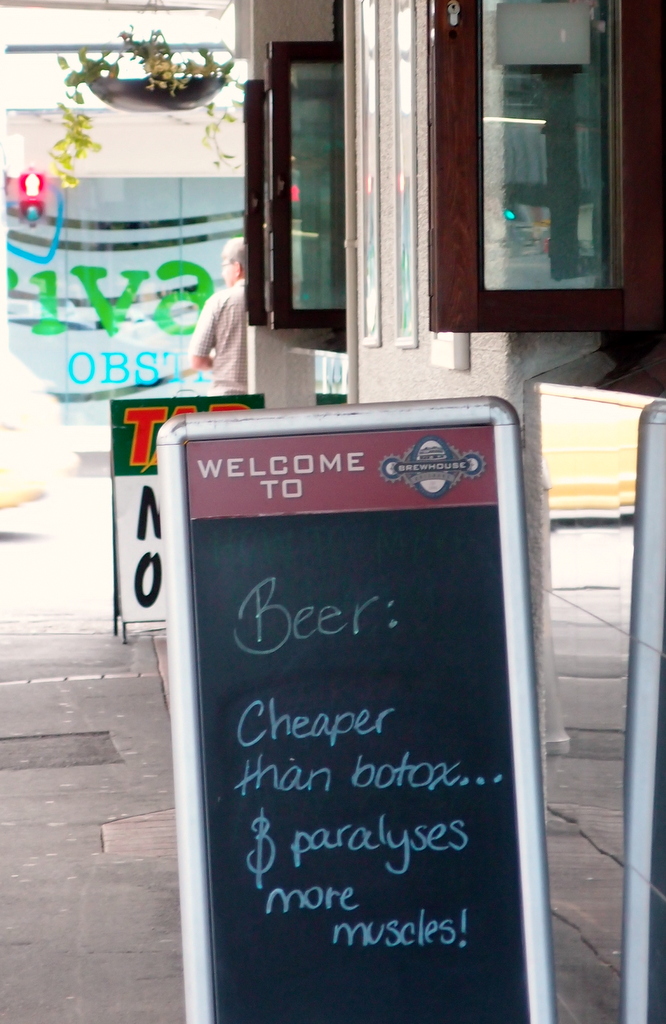 WELCOME
TO
BREWHOUSE
Beer:
Cheaper
than botox...
& paralyses
more
muscles!
OBST